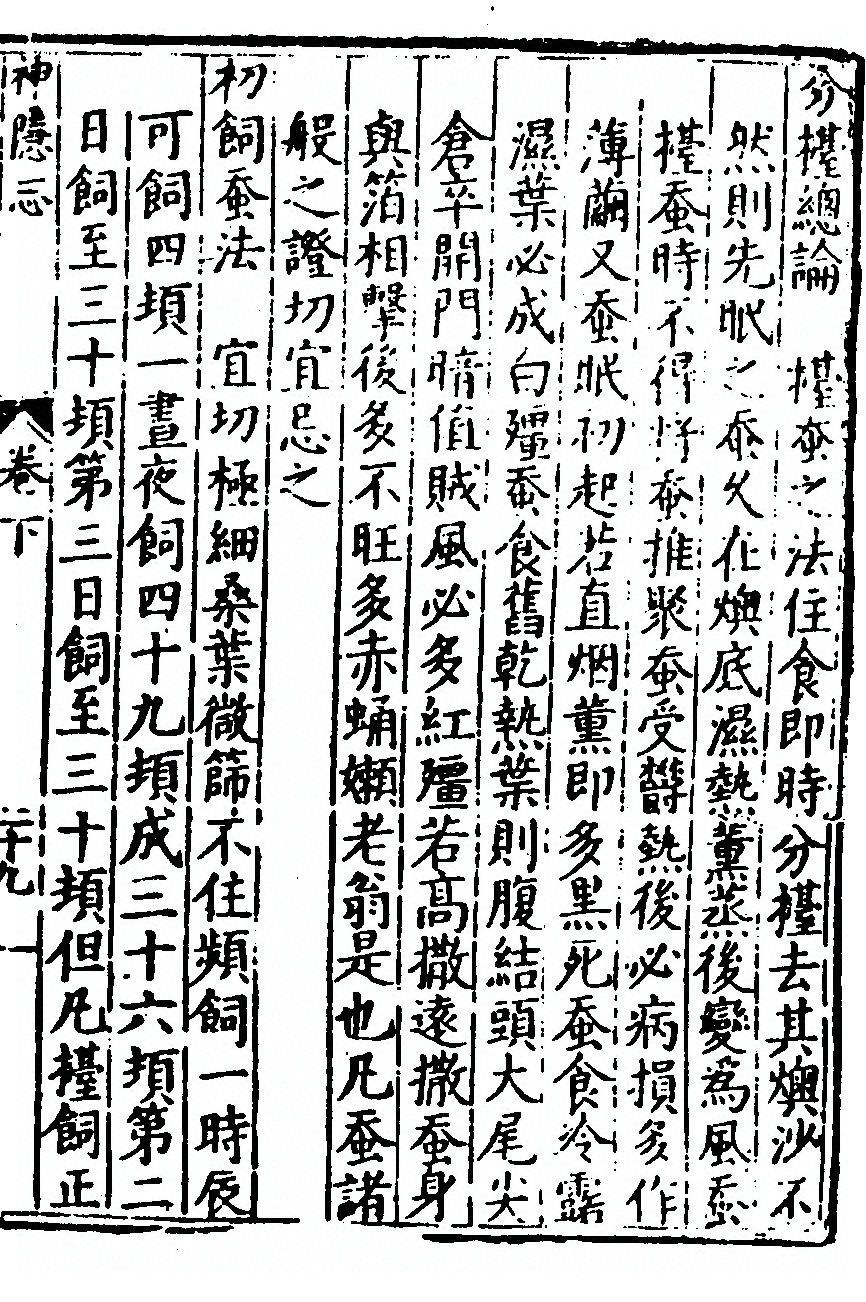 分擡總論　擡蚕之法住食即時分擡去其燠沙不
然則先眠之蚕久在燠底濕熱薰蒸後變為風蚕
擡蚕時不得將蚕推聚蚕受欝熱後必病損多作
薄繭又蚕眠初起若直烟薰即多黑死蚕食冷露
濕葉必成白殭蚕食舊乾熱葉則腹結頭大尾尖
倉卒開門暗值賊風必多紅殭若高撒遠撒蚕身
與箔相擊後多不旺多赤蛹嬾老翁是也凡蚕諸
般之證切宜忌之
初飼蚕法　宜切極細桑葉微篩不住頻飼一時辰
可飼四頓一晝夜飼四十九頓成三十六頓第二
日飼至三十頓第三日飼至三十頓但凡擡飼正
神隱　卷下　二十九